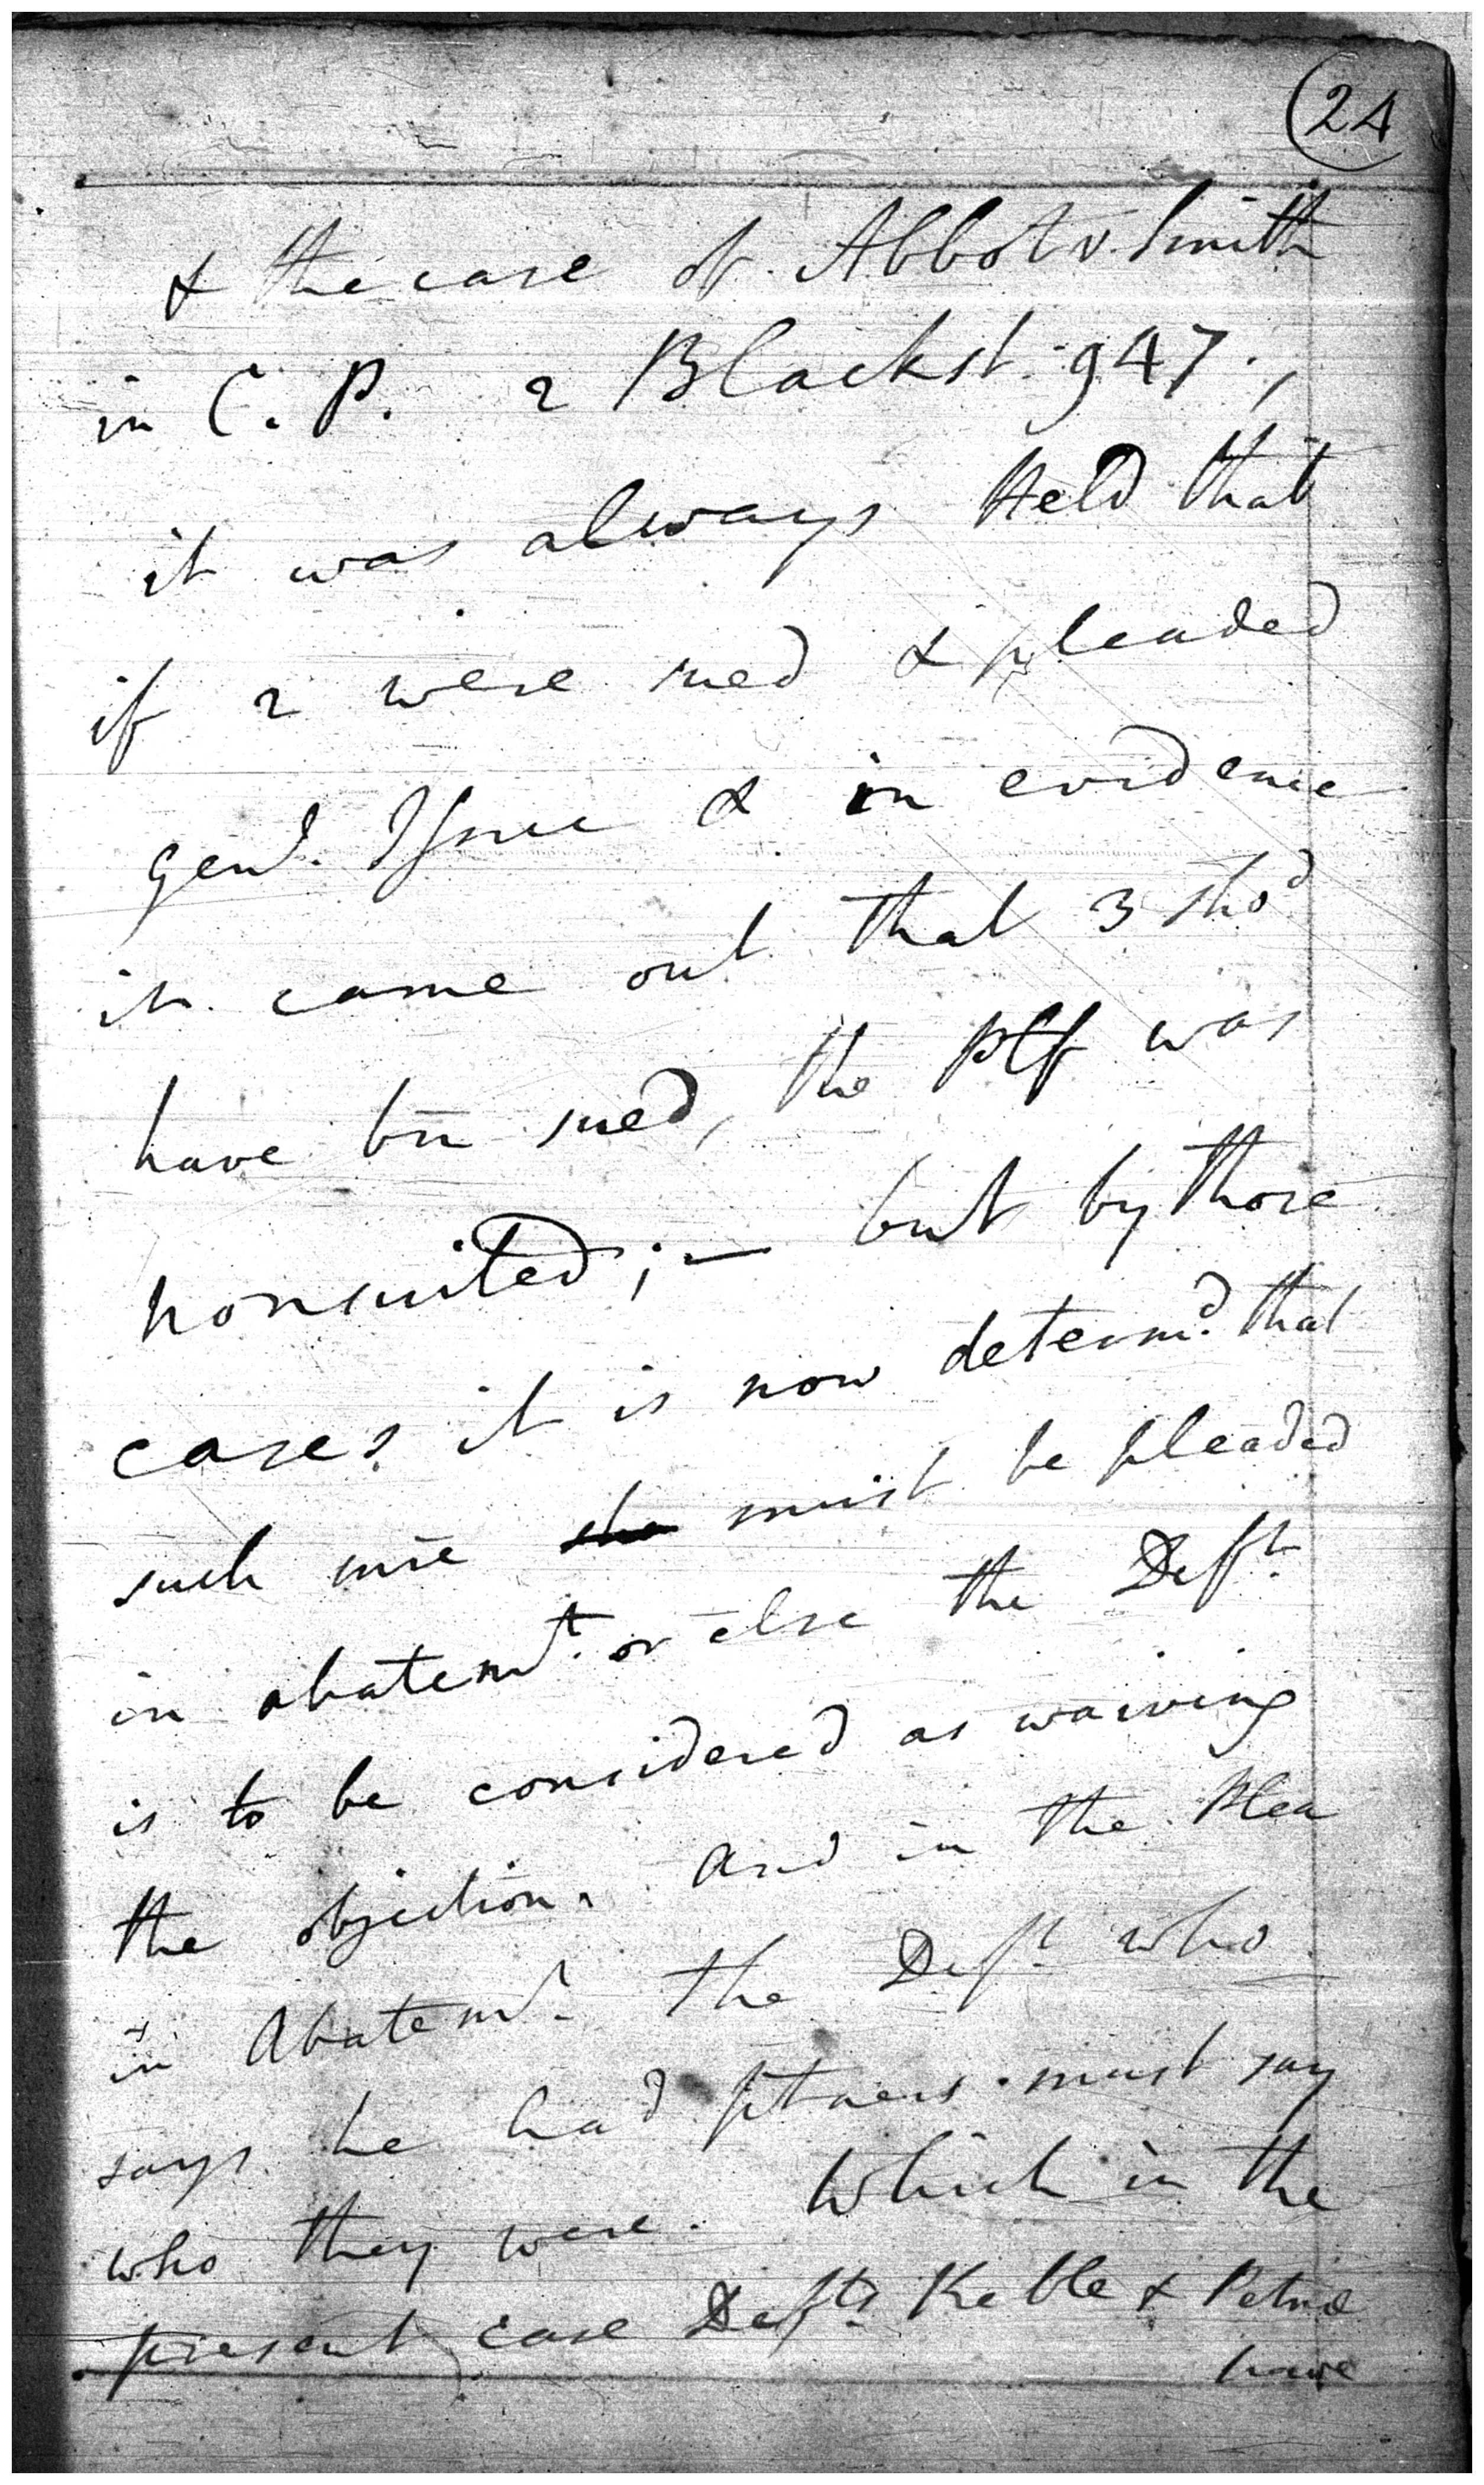 24
& the case of Abbot v. Smith
in C. P. 2 Blackst. 947.,
it was always Held that
if 2 were sued & pleaded
genl. Issue & in evidence
it came out that 3 shod
have bn sued, the Plf was
nonsuited; — but by those
cases it is now determd. that
such must be pleaded
in abatemt. or else the Deft.
is to be considered as waiving
the objection. And in the Plea
in Abatemt. the Deft. who
says he had ptners must say
who they were. Which in the
present case Defts Keble & Petrie
have